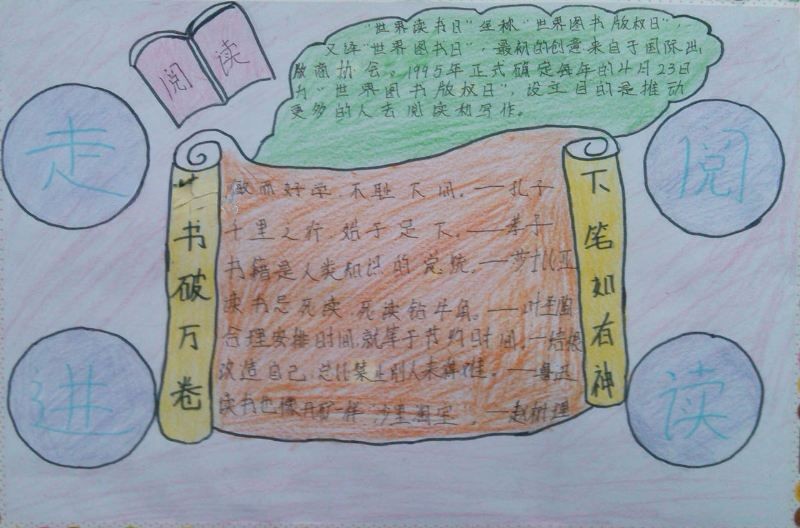 阅读
"世界读书日"全称"世界图书版权日",
又译"世界图书日",最初的创意来自于国际出
版商协会。1995年正式确定每年的4月23日
为"世界图书版权日",设立目的是推动
更多的人去阅读和写作。
走进
阅读
书破万卷
下笔如有神
敏而好学,不耻下问。——孔子
千里之行,始于足下。——老子
书籍是人类知识的总统。——莎士比亚
读书忌死读,死读钻牛角。——叶圣陶
合理安排时间,就等于节约时间。——培根
改造自己,总比禁止别人来得难。——鲁迅
读书也像开矿一样,沙里淘金。——赵树理